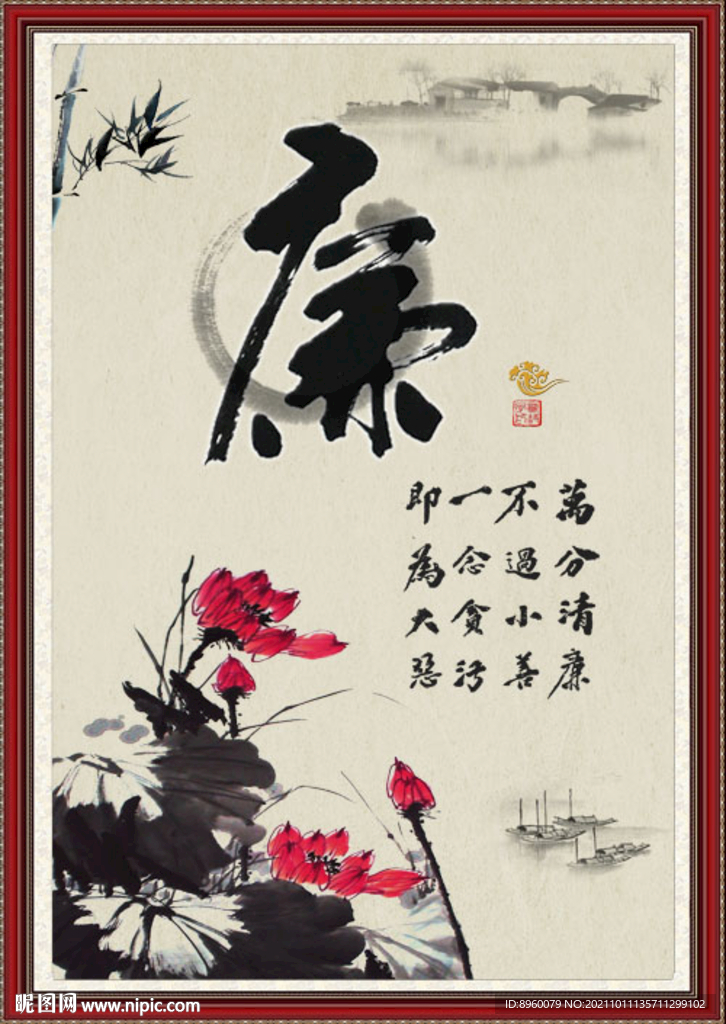 廉
萬分清廉
不過小善
一念貪污
即為大惡
昵图网 www.nipic.com
ID:8960079 NO:20211011135711299102